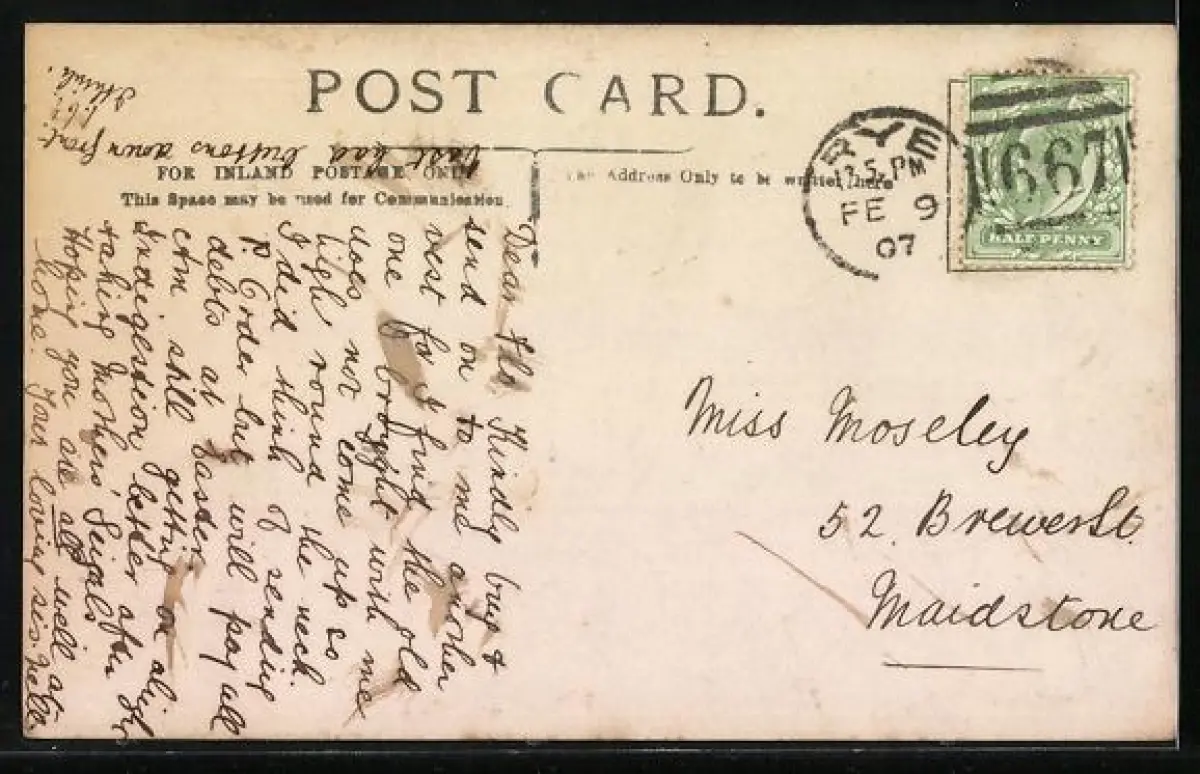 POST CARD.
FOR INLAND POSTAGE ONLY
This Space may be used for Communication.
The Address Only to be written here
RYE
5 PM
FE 9
07
667
HALF PENNY
Miss Moseley
52. Brewer St.
Maidstone
Dear Flo. Kindly buy &
send on to me another
vest for I find the old
one I brought with me
does not come up so
high round the neck.
I did think of sending
P. Order but will pay all
debts at Easter.
Am still getting on alright
Indigestion better after
taking Mothers' Seigals
Hoping you are all well at
home. Your loving sis. Nell.
last had buttons down front
I think.